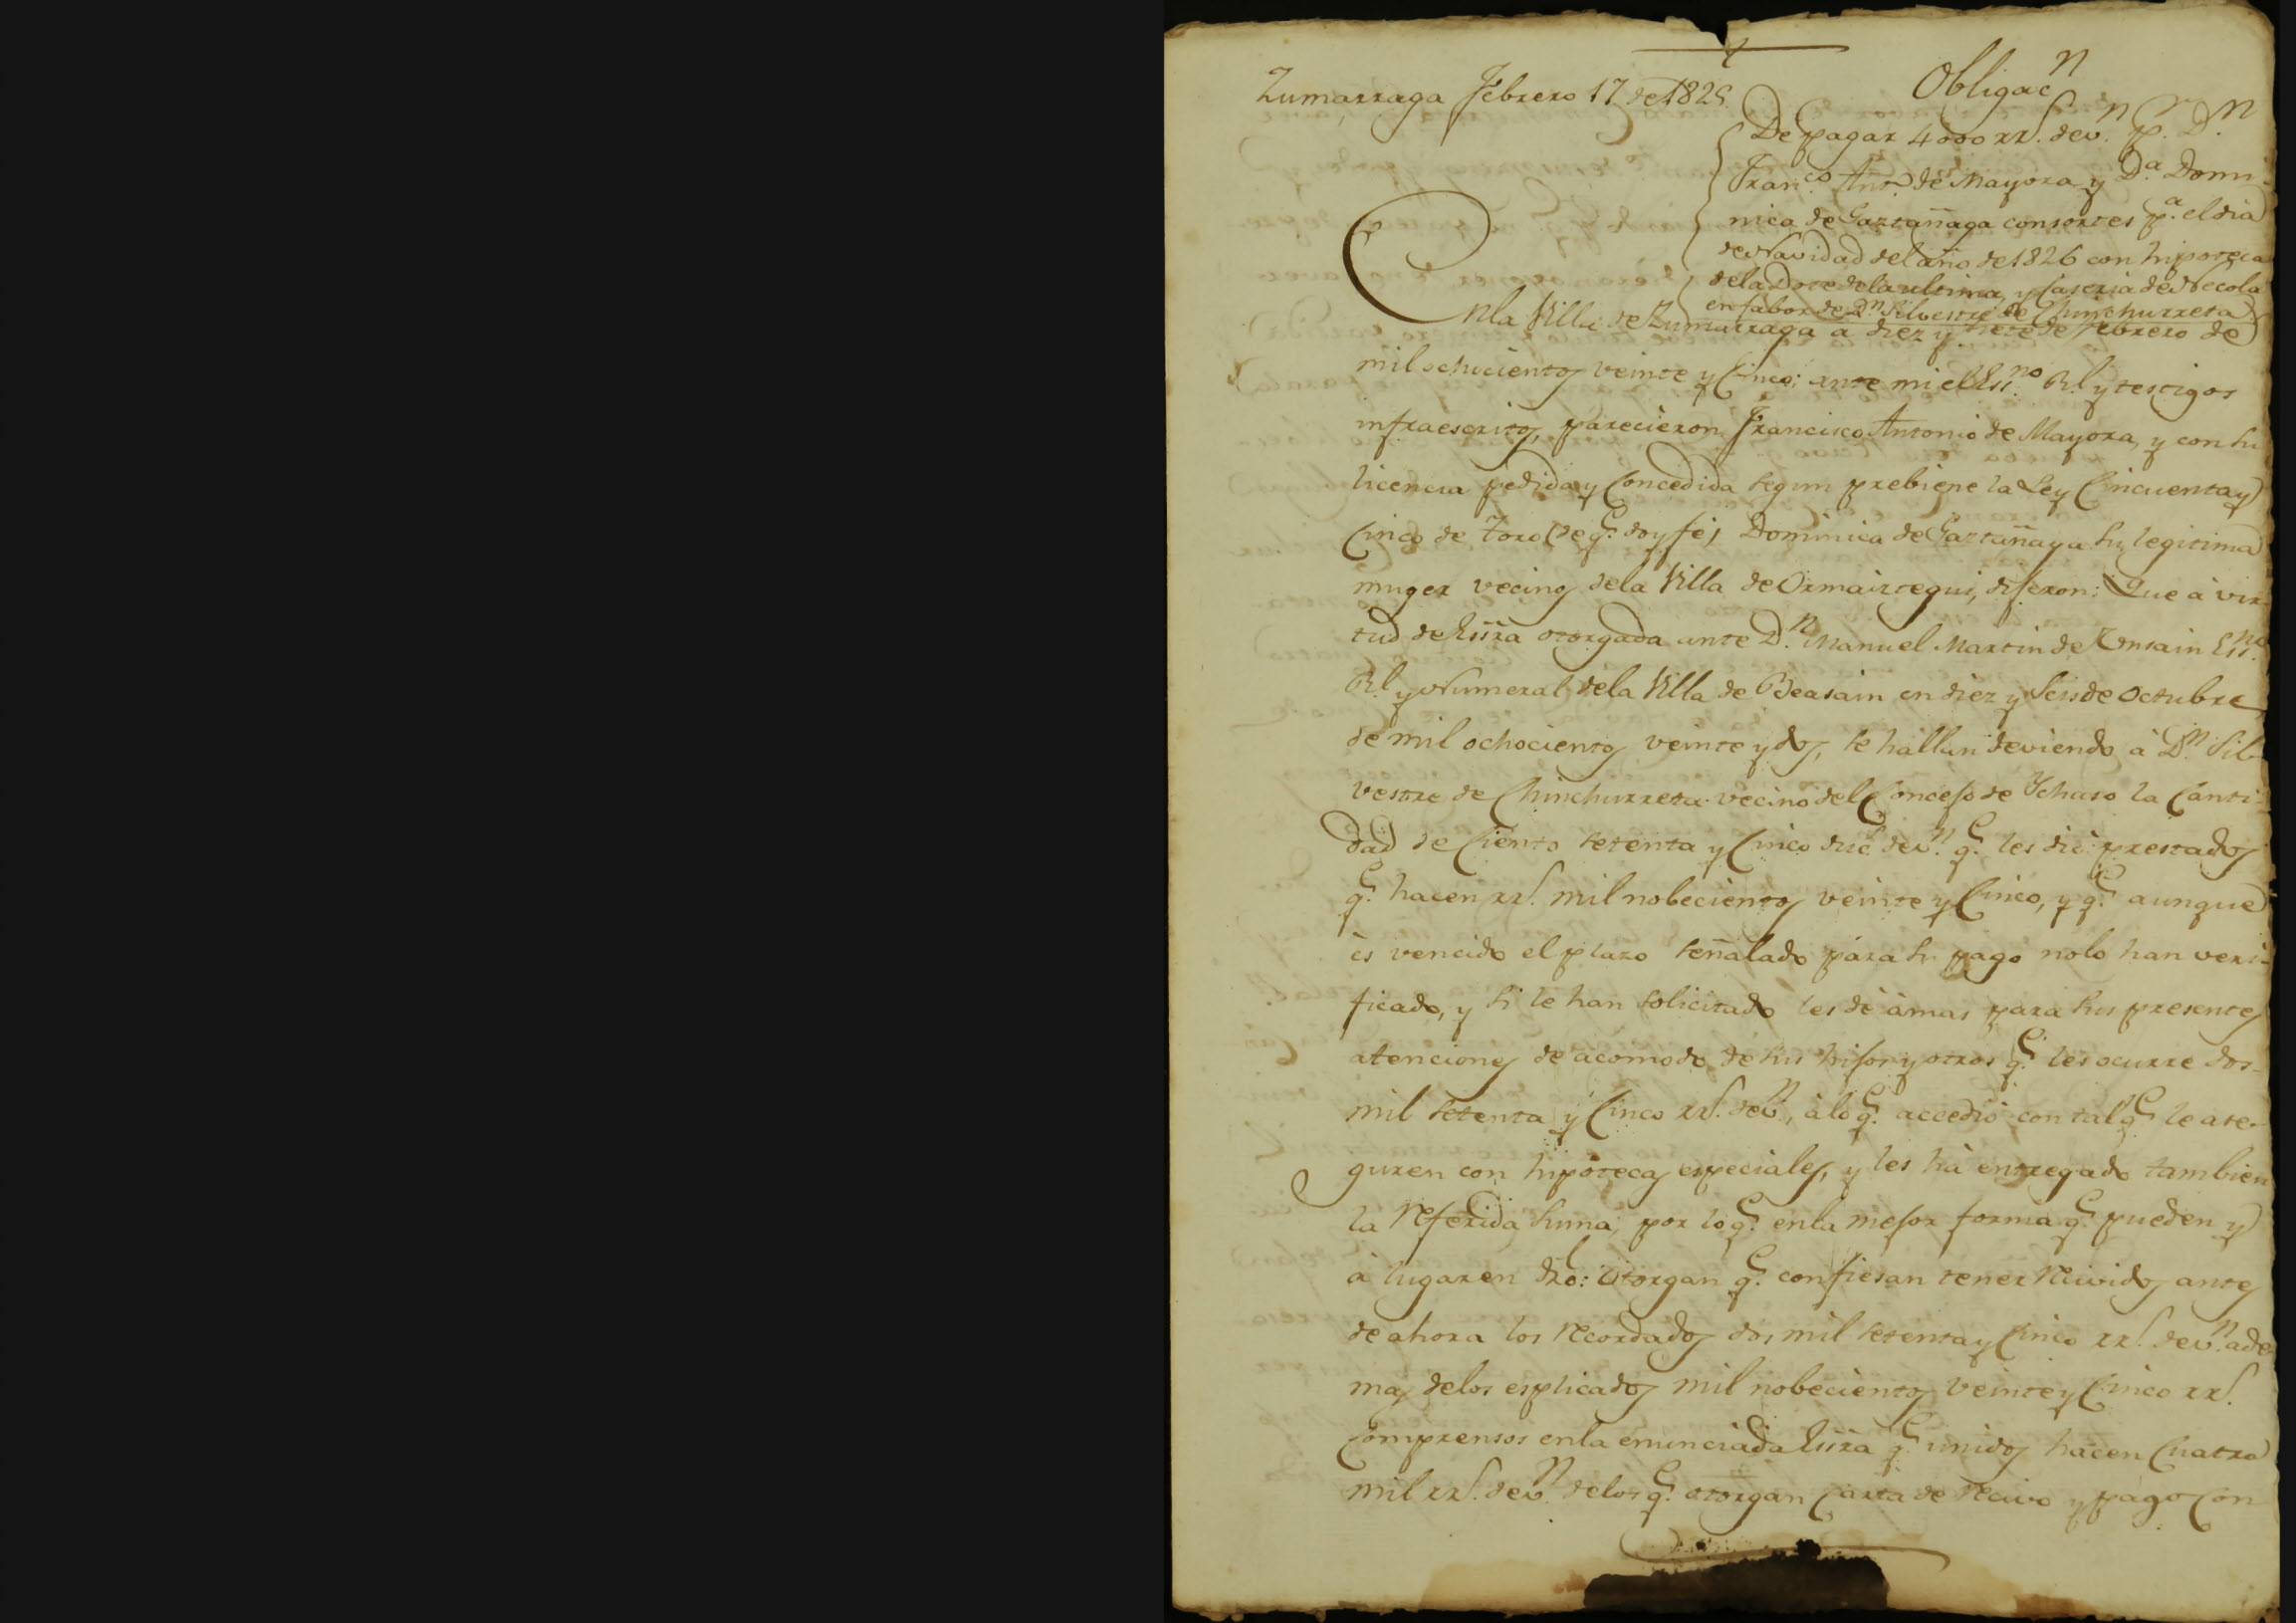 Zumarraga Febrero 17 de 1825
Obligac.n
De pagar 4000 rr.s de v.n p.r D.n
Fran.co Ant.o de Mayora y D.a Domi-
nica de Gaztañaga consortes p.a el dia
de Navidad del año de 1826 con hipoteca
dela Dote dela ultima, y Caseria de Necola
en fabor de D.n Silvestre de Chinchurreta
Enla Villa de Zumarraga á diez y siete de Febrero de
mil ochocientos veinte y Cinco: ante mi el Ess.no Rl. y testigos
infraescritos, parecieron Francisco Antonio de Mayora, y con su
licencia pedida y Concedida segun prebiene la Ley Cincuenta y
Cinco de Toro (de q.e doy fé) Dominica de Gaztañaga su legitima
muger vecinos dela Villa de Ormaiztegui, dijeron: Que á vir-
tud de Essra otorgada ante D.n Manuel Martin de Unsain Ess.no
Rl. y Numeral dela Villa de Beasain en diez y Seis de Octubre
de mil ochocientos veinte y dos, se hallan deviendo á D.n Sil-
vestre de Chinchurreta vecino del Concejo de Ychaso la Canti-
dad de Ciento setenta y Cinco duc.s de v.n q.e les dio prestados
q.e hacen rr.s mil nobecientos veinte y Cinco, y q.e aunque
és vencido el plazo señalado para su pago nolo han veri-
ficado, y si le han solicitado les dé ámas para sus presentes
atenciones de acomodo de sus hijos y otros q.e les ocurre dos
mil setenta y Cinco rr.s de v.n, álo q.e accedió con tal q.e le ase-
guren con hipotecas especiales, y les há entregado tambien
la referida suma, por lo q.e enla mejor forma q.e pueden y
á lugar en dro: Otorgan q.e confiesan tener recivido antes
de ahora los recordados dos mil setenta y Cinco rr.s de v.n ade-
mas delos esplicados mil nobecientos veinte y Cinco rr.s
Comprensos enla enunciada Essra q.e unidos hacen Cuatro
mil rr.s de v.n delos q.e otorgan Carta de recivo y pago Con